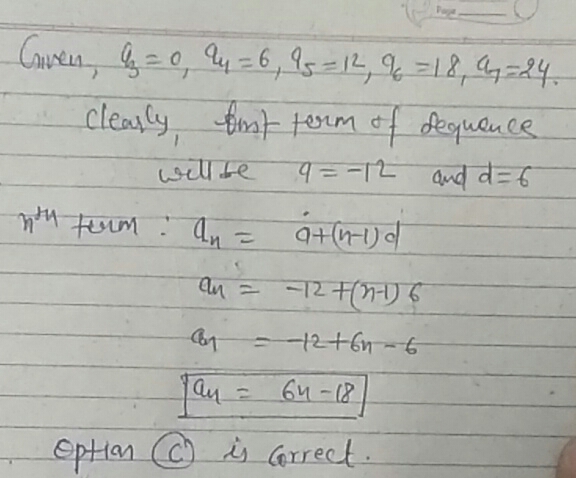 Page
Given, a₃ = 0, a₄ = 6, a₅ = 12, a₆ = 18, a₇ = 24.
Clearly, first term of sequence
will be a = -12 and d = 6
nᵗʰ term : aₙ = a+(n-1)d
aₙ = -12+(n-1) 6
aₙ = -12+6n - 6
aₙ = 6n - 18
Option (C) is Correct.